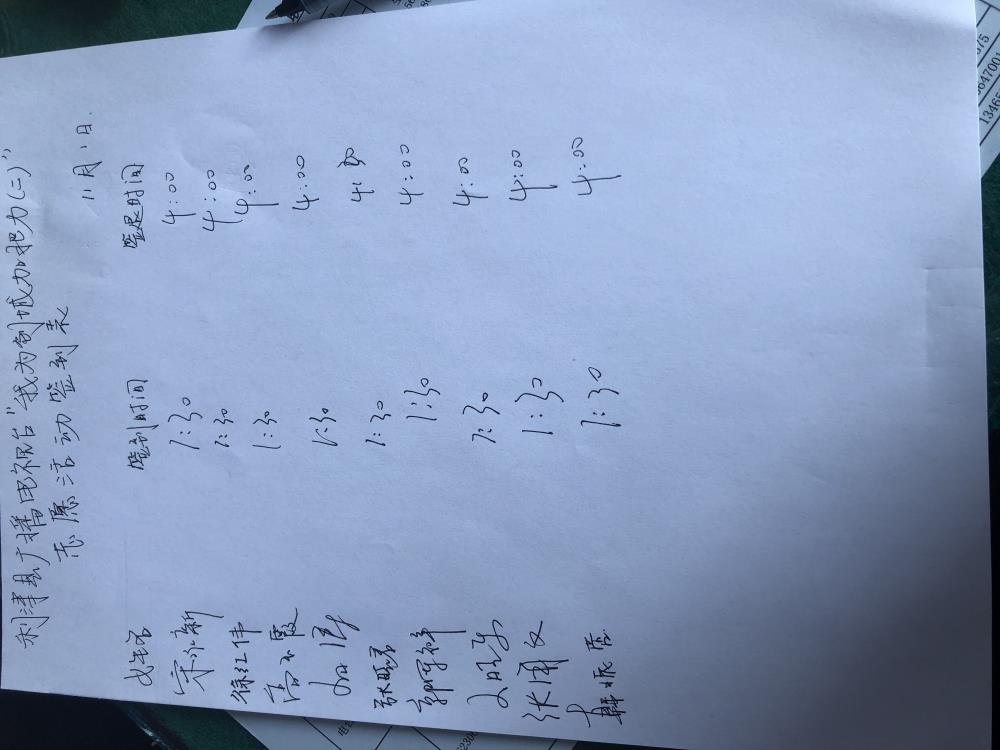 利津县广播电视台"我为创城加把力(二)"
志愿活动签到表
11月1日.
姓名 签到时间 签退时间
宋永新 1:30 4:00
徐红伟 1:30 4:00
高玉霞 1:30 4:00
1:30 4:00
张晓君 1:30 4:00
郭军祥 1:30 4:00
1:30 4:00
张国文 1:30 4:00
1:30 4:00